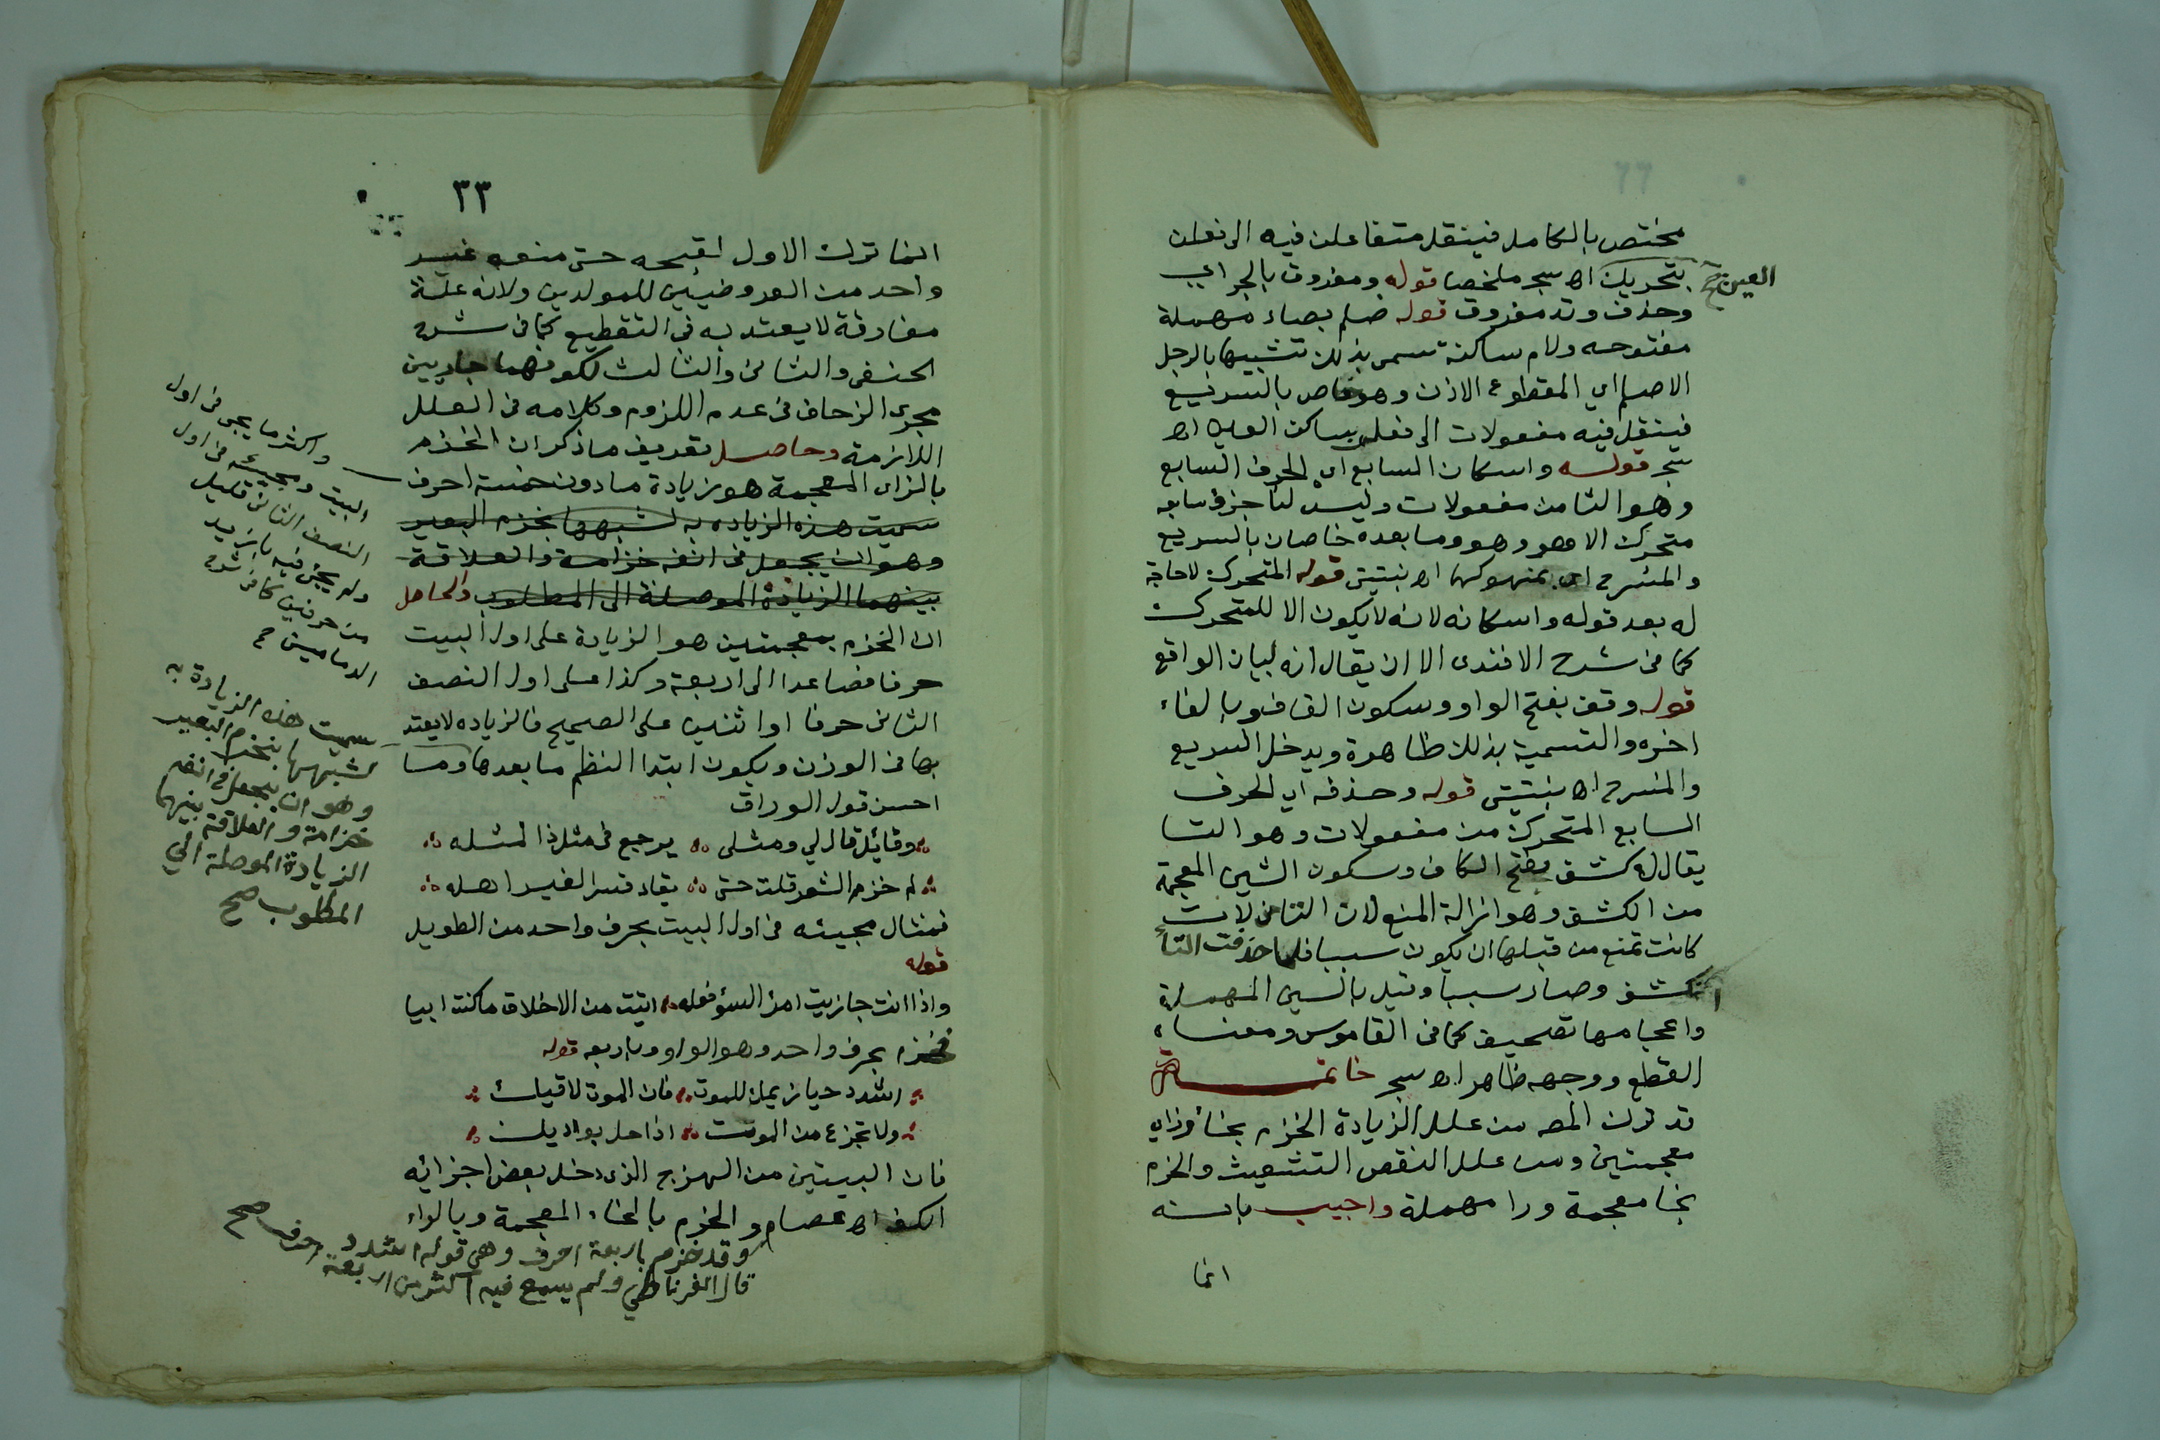 مختص بالكامل فينقل متفاعلن فيه الى فعلن
بتحريك اه سجر ملخصا قوله ومفروق بالجر اي
العين صح
وحذف وتد مفروق قوله صلم بصاد مهملة
مفتوحه ولام ساكنة سمى بذلك تشبيها بالرجل
الاصلم اي المقطوع الاذن وهو خاص بالسريع
فينقل فيه مفعولات الى فعلن بساكن العين اه
سجر قوله واسكان السابع اي الحرف السابع
وهو التا من مفعولات وليس لنا جزؤ سابعه
متحرك الا هو وهو وما بعده خاصان بالسريع
والمنسرح اي بمنهوكها اه بنتيتى قوله المتحرك لاحاجة
له بعد قوله واسكانه لانه لا يكون الا للمتحرك
كما فى شرح الافندى الا ان يقال انه لبيان الواقع
قوله وقف بفتح الواو وسكون القاف وبالفاء
اخره والتسمية بذلك ظاهرة ويدخل السريع
والمنسرح اه بنتيتى قوله وحذفه اي الحرف
السابع المتحرك من مفعولات وهو التا
يقال له كشف بفتح الكاف وسكون الشين المعجمة
من الكشف وهو ازالة المنع لان التا من لات
كانت تمنع من قبلها ان يكون سببا فلما حذفت التأ
انكشف وصار سببا وقيل بالسين المهملة
واعجامها تصحيف كما فى القاموس ومعناه
القطع ووجهه ظاهر اه سجر خاتمة
قد ترك المص من علل الزيادة الخزم بخأ وزاى
معجمتين ومن علل النقص التشعيث والخرم
بخا معجمة ورا مهملة واجيب بانه
انما
٣٣
انما ترك الاول لقبحه حتى منعه غير
واحد من العروضيين للمولدين ولانه علة
مفارقة لا يعتد به فى التقطيع كما فى شرح
الحنفى والثانى والثالث لكونهما جاريين
مجرى الزحاف فى عدم اللزوم وكلامه فى العلل
اللازمة وحاصل تعريف ماذكر ان الخزم
بالزاى المعجمة هو زيادة مادون خمسة احرف
سميت هذه الزياده به لشبهها بخزم البعير
وهو ان يجعل فى انفه خزامة والعلاقة
بينهما الزيادة الموصلة الى المطلوب والحاصل
ان الخزم بمعجمتين هو الزيادة على اول البيت
حرفا فصاعدا الى اربعة وكذا على اول النصف
الثانى حرفا او اثنين على الصحيح فالزياده لا يعتد
بها فى الوزن ويكون ابتدا النظم ما بعدها وما
احسن قول الوراق
وقائل قال لي ومثلى يرجع فى مثل ذا لمثله
لم خزم الشعر قلت حتى يقاد قسرا لغير اهله
فمثال مجيئه فى اول البيت بحرف واحد من الطويل
قوله
واذا انت جازيت امرا السؤ فعله اتيت من الاخلاق ماكنت ابيا
فخزم بحرف واحد وهو الواو وباربعه قوله
اشدد حيازيمك للموت فان الموت لاقيك
ولا تجزع من الموت اذا حل بواديك
فان البيتين من الهزج الذى دخل بعض اجزائه
الكف اه عصام والخزم بالخاء المعجمة وبالزاء
وقد خزم باربعة احرف وهى قوله اشدد
قال الغرناطي ولم يسمع فيه اكثر من اربعة احرف صح
واكثر ما يجى فى اول
البيت ومجيئه فى اول
النصف الثانى قليل
ولم يجئ فيه بازيد
من حرفين كما فى شرح
الدمامينى صح
سميت هذه الزيادة به
لشبهها بخزم البعير
وهو ان يجعل فى انفه
خزامة والعلاقة بينهما
الزيادة الموصلة الي
المطلوب صح